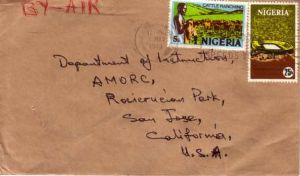 BY-AIR
CATTLE RANCHING
5k
NIGERIA
NIGERIA
Department of Instruction,
AMORC,
Rosicrucian Park,
San Jose,
California,
U.S.A.